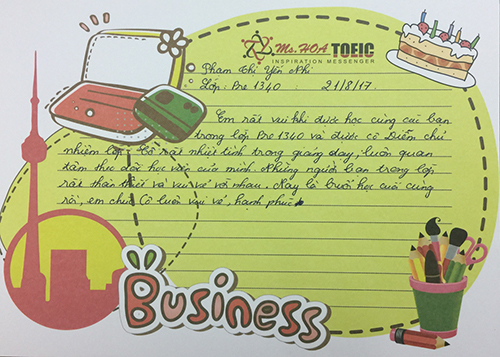 Ms. HOA TOEIC
INSPIRATION MESSENGER
Phạm Thị Yến Nhi
Lớp: Pre 1340 21/8/17.
Em rất vui khi được học cùng các bạn
trong lớp Pre 1340 và được cô Diễm chủ
nhiệm lớp. Cô rất nhiệt tình trong giảng dạy, luôn quan
tâm thúc đẩy học viên của mình. Những người bạn trong lớp
rất thân thiết và vui vẻ với nhau. Nay là buổi học cuối cùng
rồi, em chúc Cô luôn vui vẻ, hạnh phúc
Business